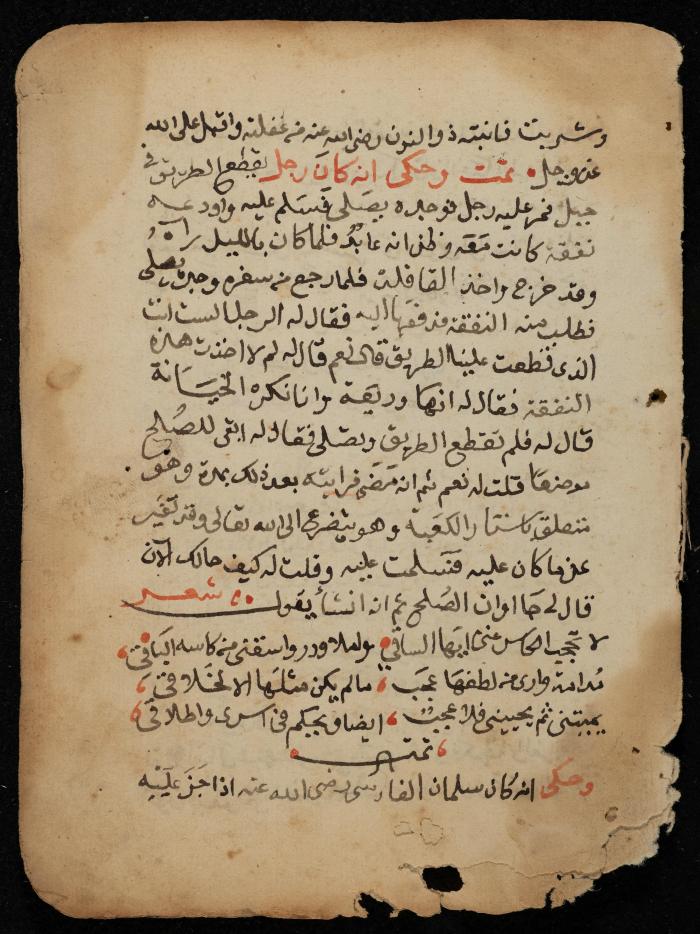 وشربت فانبته ذو النون رضى الله عنه من غفلته واقبل على الله
عز وجل تمت وحكى انه كان رجل يقطع الطريق في
جبل فمر عليه رجل فوجده يصلى فسلم عليه واودعه
نفقة كانت معه وظن انه عابد فلما كان بالليل راه
وقد خرج واخذ القافلة فلما رجع من سفره وجده يصلى
فطلب منه النفقة فدفعها اليه فقال له الرجل الست انت
الذى قطعت علينا الطريق قال نعم قال له لم لا اخذت هذه
النفقة فقال له انها وديعة وانا نكره الخيانة
قال له فلم تقطع الطريق وتصلى فقال له ابقى للصلح
موضعا قلت له نعم ثم انه مضى فرايته بعد ذلك بمدة وهو
متعلق باستار الكعبة وهو يتضرع الى الله تعالى وقد تغير
عن ما كان عليه فسلمت عليه وقلت له كيف حالك الآن
قال لي جا اوان الصلح ثم انه انشأ يقول شعر
لا تحجب الكاس عنى ايها الساقي واسقنى من كاسه الباقى
مدامة وارى من لطفها عجب مالم يكن مثلها الا لخلاقى
يميتنى ثم يحيينى فلا عجب ايضا ويحكم فى اسرى واطلاقى
تمت
وحكى انه كان سلمان الفارسى رضى الله عنه اذا جن عليه